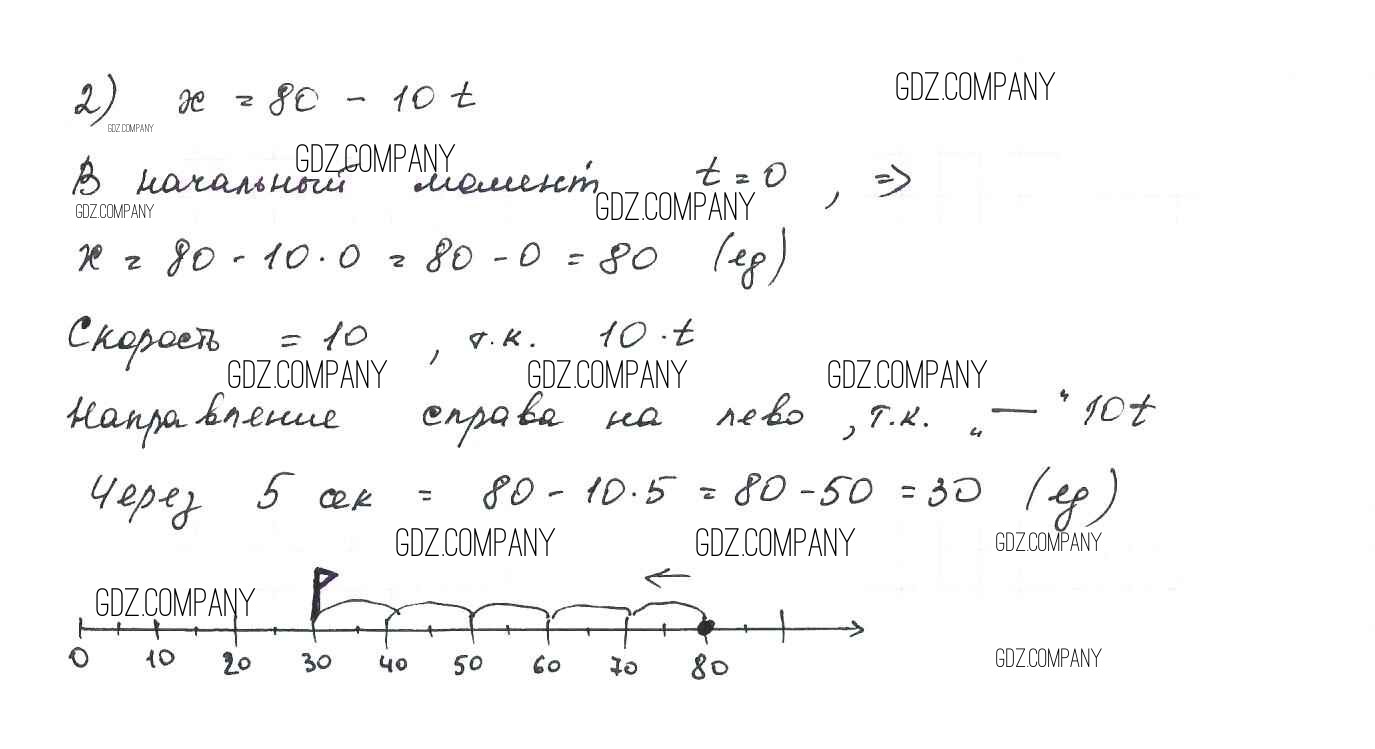 2) x = 80 - 10 t
GDZ.COMPANY
GDZ.COMPANY
GDZ.COMPANY
В начальный момент t = 0 , =>
GDZ.COMPANY
GDZ.COMPANY
x = 80 - 10 · 0 = 80 - 0 = 80 (ед)
Скорость = 10 , т.к. 10 · t
GDZ.COMPANY GDZ.COMPANY GDZ.COMPANY
Направление справа на лево , т.к. „—“ 10t
Через 5 сек = 80 - 10 · 5 = 80 - 50 = 30 (ед)
GDZ.COMPANY GDZ.COMPANY GDZ.COMPANY
GDZ.COMPANY
0 10 20 30 40 50 60 70 80
GDZ.COMPANY